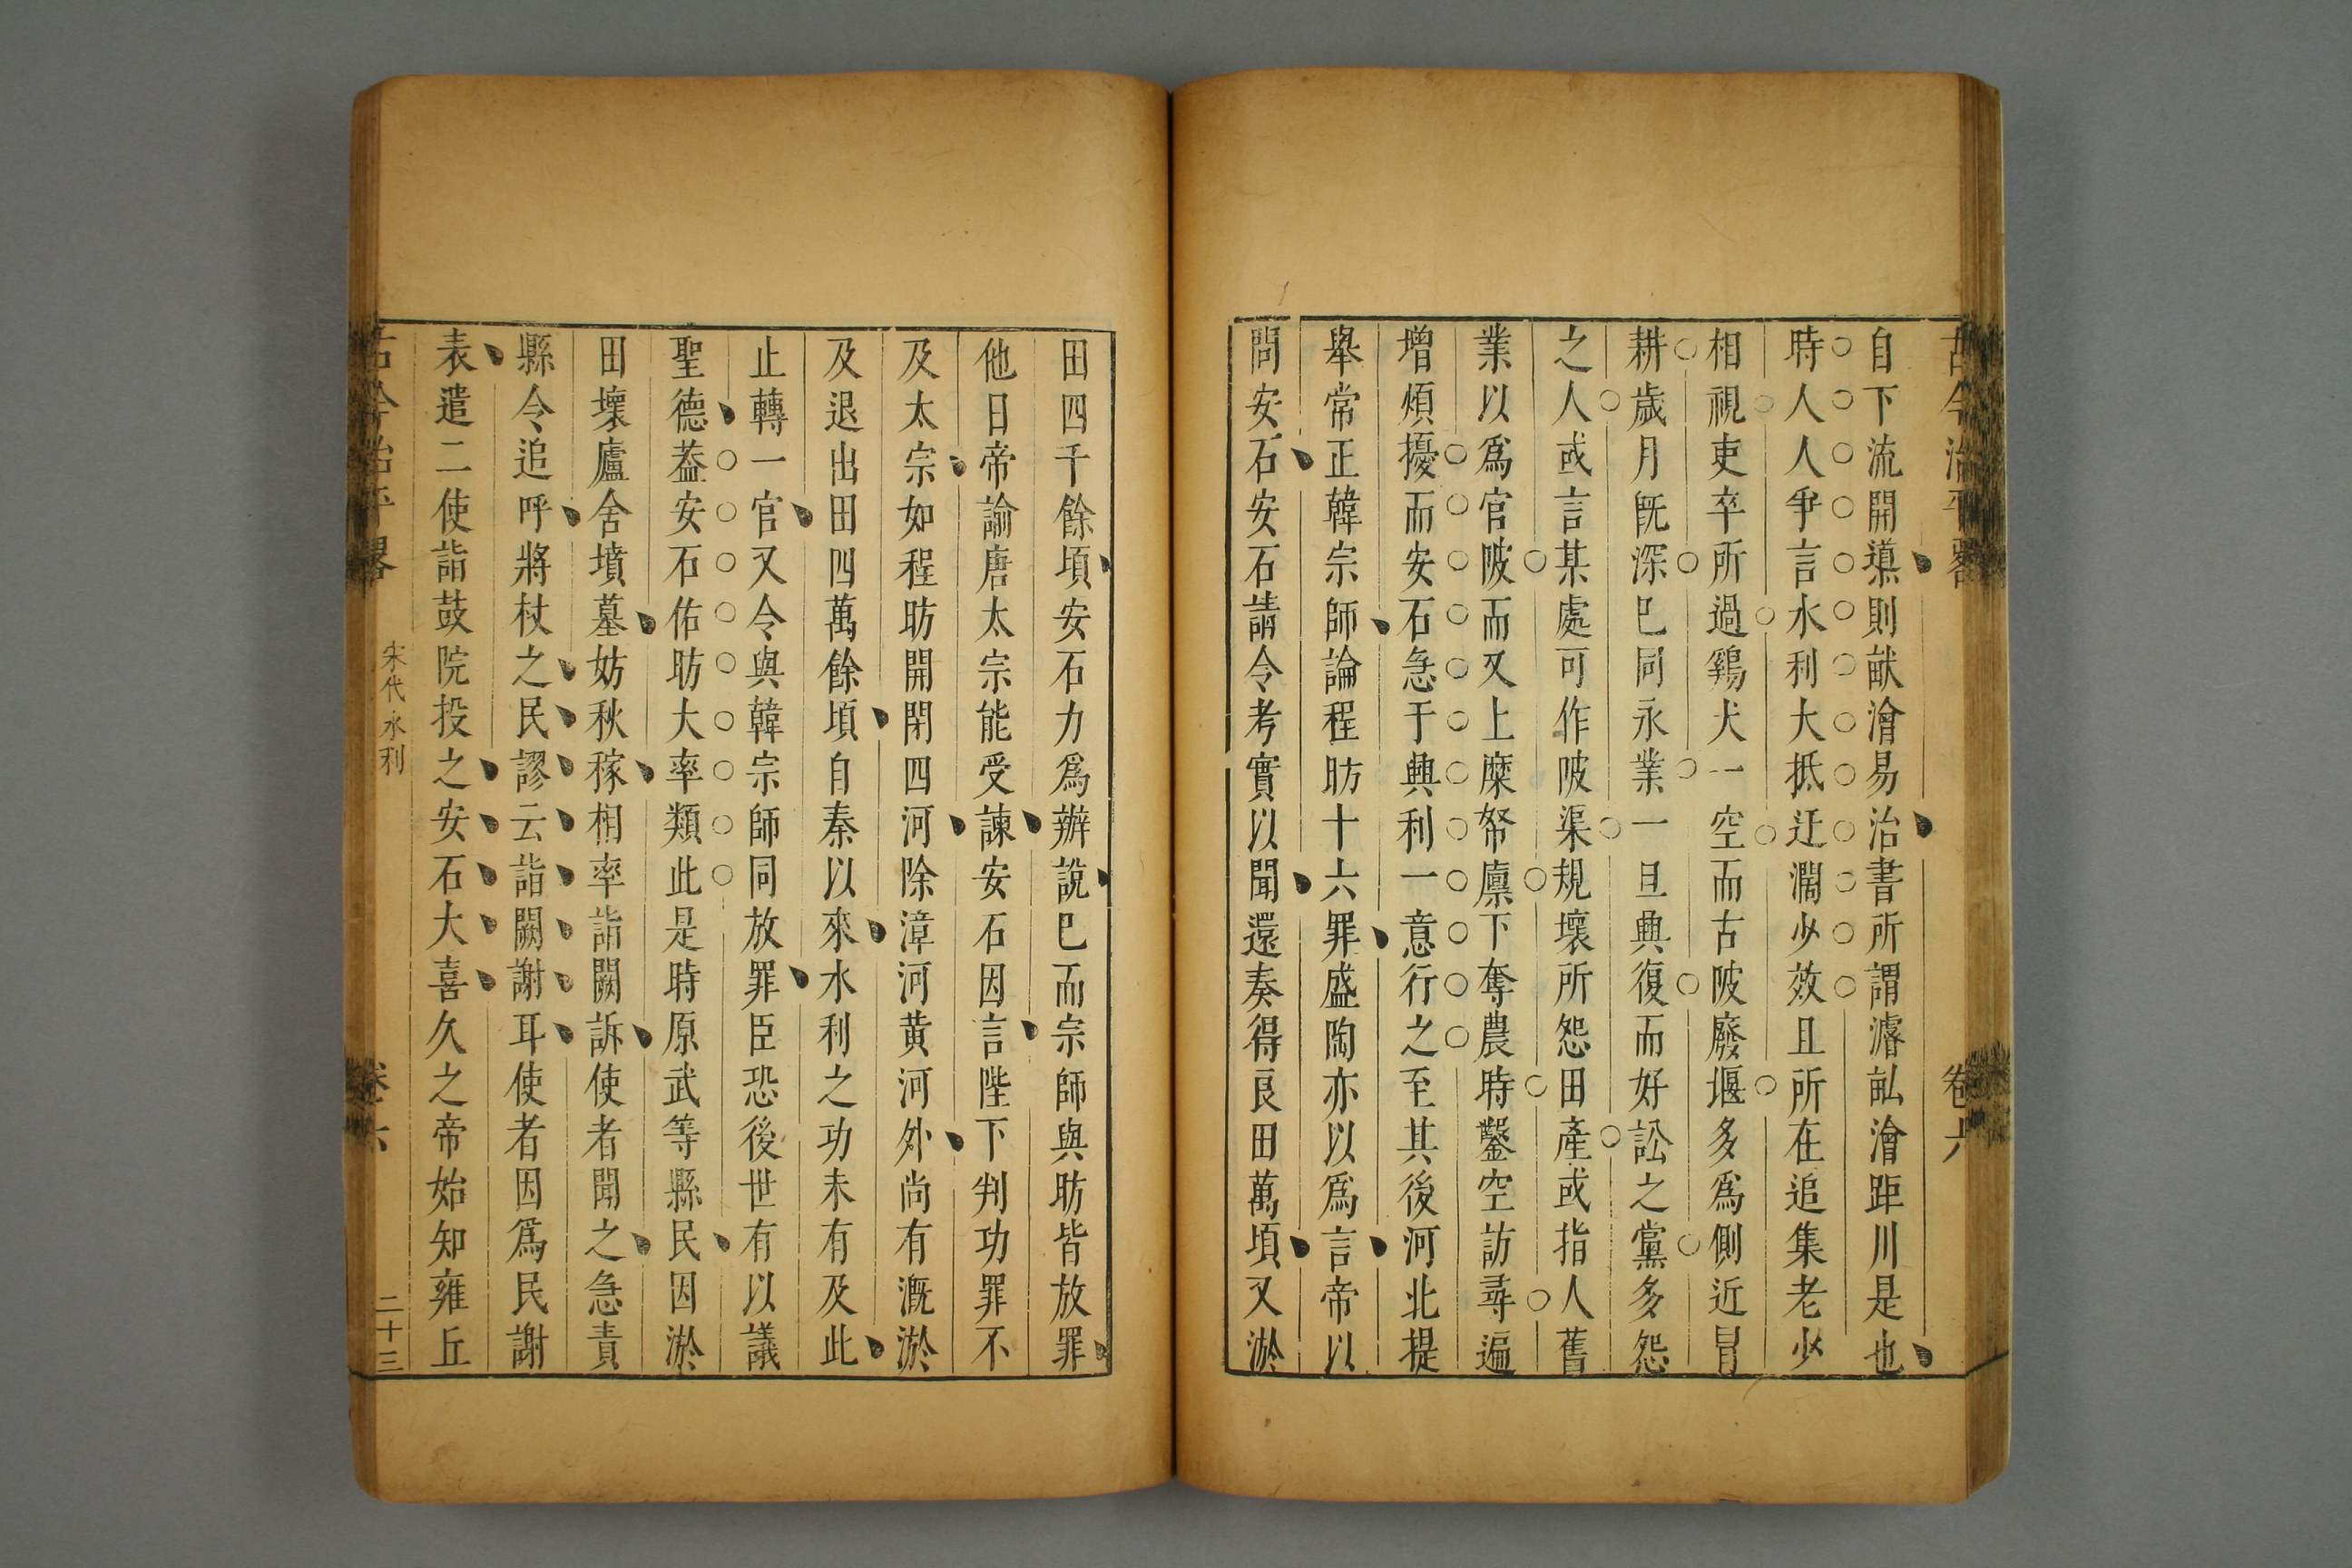 古今治平畧 卷六
自下流開導則畎澮易治書所謂濬畎澮距川是也
時人人爭言水利大抵迂濶少效且所在追集老少
相視吏卒所過鷄犬一空而古陂廢堰多爲側近冐
耕歲月旣深已同永業一旦興復而好訟之黨多怨
之人或言某處可作陂渠規壞所怨田產或指人舊
業以爲官陂而又上糜帑廪下奪農時鑿空訪尋遍
增煩擾而安石急于興利一意行之至其後河北提
舉常正韓宗師論程昉十六罪盛陶亦以爲言帝以
問安石安石請令考實以聞還奏得良田萬頃又淤
田四千餘頃安石力爲辦說已而宗師與昉皆放罪
他日帝論唐太宗能受諫安石因言陛下判功罪不
及太宗如程昉開閉四河除漳河黄河外尚有溉淤
及退出田四萬餘頃自秦以來水利之功未有及此
止轉一官又令與韓宗師同放罪臣恐後世有以議
聖德葢安石佑昉大率類此是時原武等縣民因淤
田壞廬舍墳墓妨秋稼相率詣闕訴使者聞之急責
縣令追呼將杖之民謬云詣闕謝耳使者因爲民謝
表遣二使詣鼓院投之安石大喜久之帝始知雍丘
古今治平畧 宋代水利 卷六 二十三